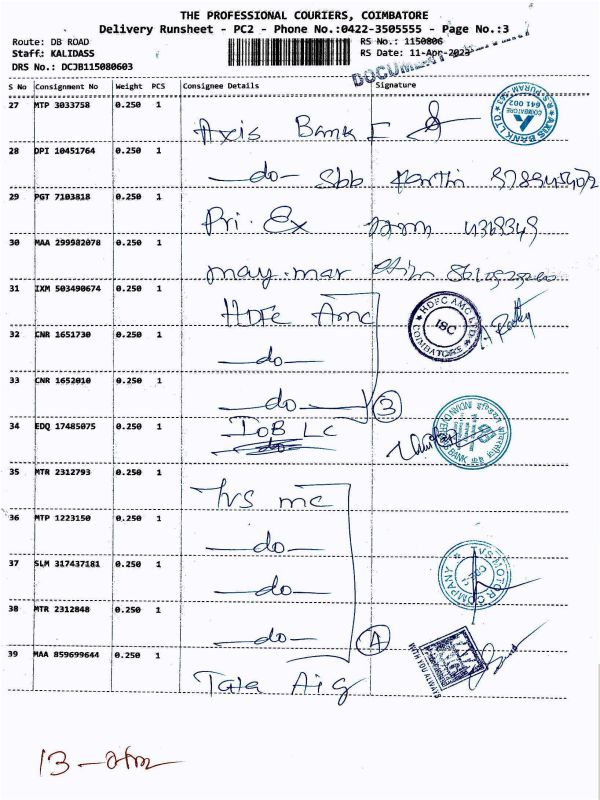 THE PROFESSIONAL COURIERS, COIMBATORE
Delivery Runsheet - PC2 - Phone No.:0422-3505555 - Page No.:3
Route: DB ROAD RS No.: 1150806
Staff: KALIDASS RS Date: 11-Apr-2023
DRS No.: DCJB115080603
S No Consignment No Weight PCS Consignee Details Signature
27 MTP 3033758 0.250 1
Axis Bank I
AXIS BANK LTD R S PURAM COIMBATORE 641 002
28 DPI 10451764 0.250 1
do
29 PGT 7103818 0.250 1
Pri. Ex
30 MAA 299982078 0.250 1
may. mar
31 IXM 503490674 0.250 1
HDFC Amc
HDFC AMC LTD. ISC COIMBATORE
32 CNR 1651730 0.250 1
do
33 CNR 1652010 0.250 1
do 3
34 EDQ 17485075 0.250 1
IOB LC
35 MTR 2312793 0.250 1
tvs mc
36 MTP 1223150 0.250 1
do
37 SLM 317437181 0.250 1
do
TVS MOTOR COMPANY
38 MTR 2312848 0.250 1
do 4
39 MAA 859699644 0.250 1
Tata Aig
WITH YOU ALWAYS
13